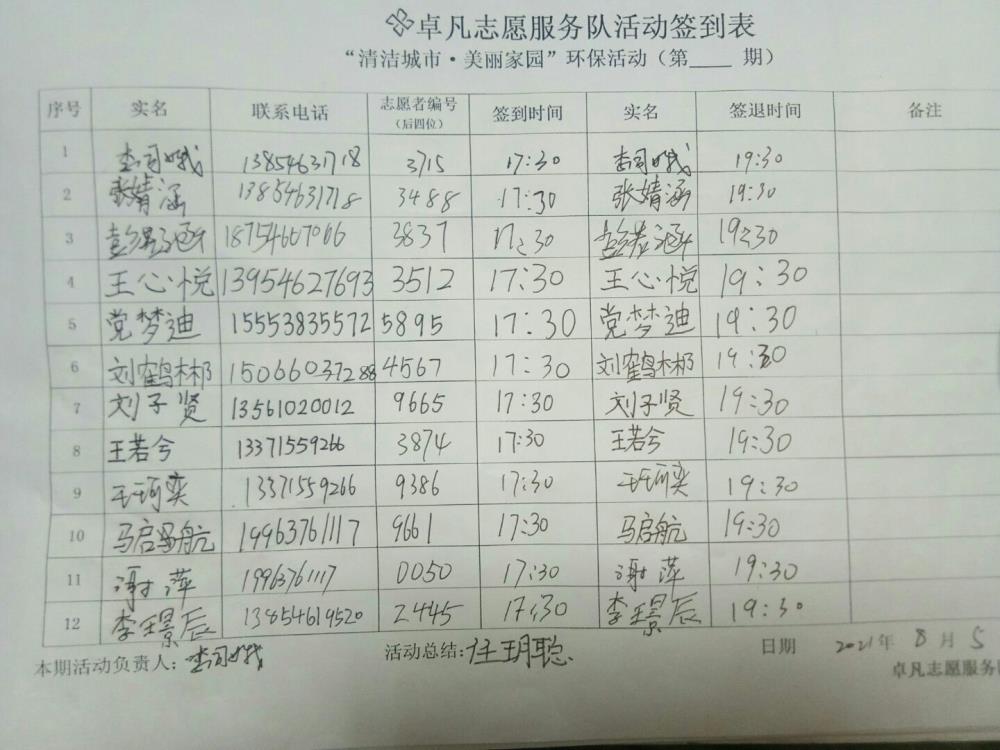 卓凡志愿服务队活动签到表
“清洁城市·美丽家园”环保活动(第____ 期)
序号 实名 联系电话 志愿者编号(后四位) 签到时间 实名 签退时间 备注
1 李司娥 13854631718 3715 17:30 李司娥 19:30
2 张婧涵 13854631718 3488 17:30 张婧涵 19:30
3 18754667066 3837 17:30 19:30
4 王心悦 13954627693 3512 17:30 王心悦 19:30
5 党梦迪 15553835572 5895 17:30 党梦迪 19:30
6 刘鹤彬 15066037288 4567 17:30 刘鹤彬 19:30
7 刘子贤 13561020012 9665 17:30 刘子贤 19:30
8 王若兮 13371559266 3874 17:30 王若兮 19:30
9 王珂奕 13371559266 9386 17:30 王珂奕 19:30
10 马启航 19963761117 9661 17:30 马启航 19:30
11 谢萍 19963761117 0050 17:30 谢萍 19:30
12 李璟辰 13854619520 2445 17:30 李璟辰 19:30
本期活动负责人:李司娥 活动总结:任玥聪 日期 2021年 8月 5
卓凡志愿服务队